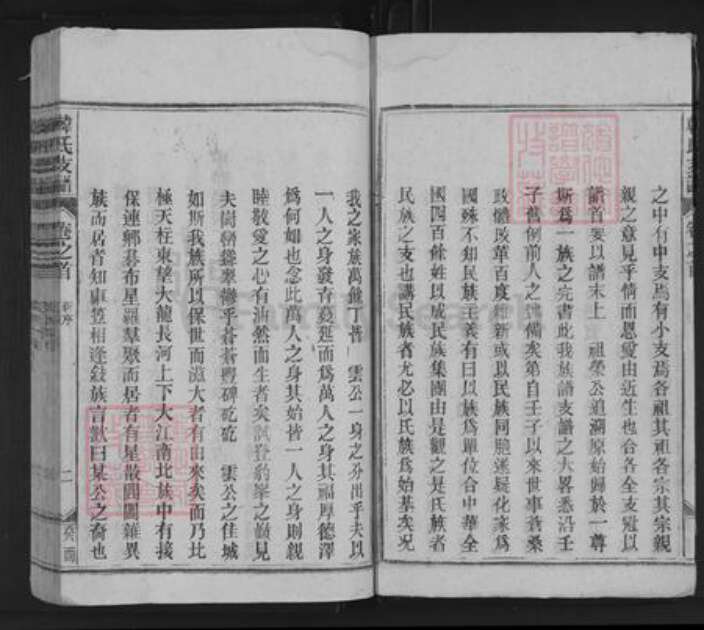 之中有中支焉有小支焉各祖其祖各宗其宗親
親之意見乎情而恩愛由近生也合各全支冠以
譜首要以譜末上 祖榮公追溯原始歸於一尊
斯爲一族之完書此我族譜支譜之大畧悉沿壬
子舊例前人之備矣第自壬子以來世事蒼桑
政體改革百度維新或以民族同胞遂疑化家爲
國殊不知民族主義有曰以族爲單位合中華全
國四百餘姓以成民族集團由是觀之是氏族者
民族之支也講民族者尤必以氏族爲始基矣况
我之家族萬餘丁皆 雲公一身之分出乎夫以
一人之身發育蔓延而爲萬人之身其福厚德澤
爲何如也念此萬人之身其始皆一人之身則親
睦敬愛之心有油然而生者矣試登豹峯之巔見
夫岡巒聳翠鬱乎蒼蒼豐碑矻矻 雲公之佳城
如斯我族所以保世而滋大者有由來矣而乃比
極天柱東擘大龍長河上下大江南北族中有接
保連鄉碁布星羅羣聚而居者有星散團圞雜異
族而居者知車笠相逢敍族言歡曰某公之裔也
韓氏支譜
卷之首
序
二
癸酉